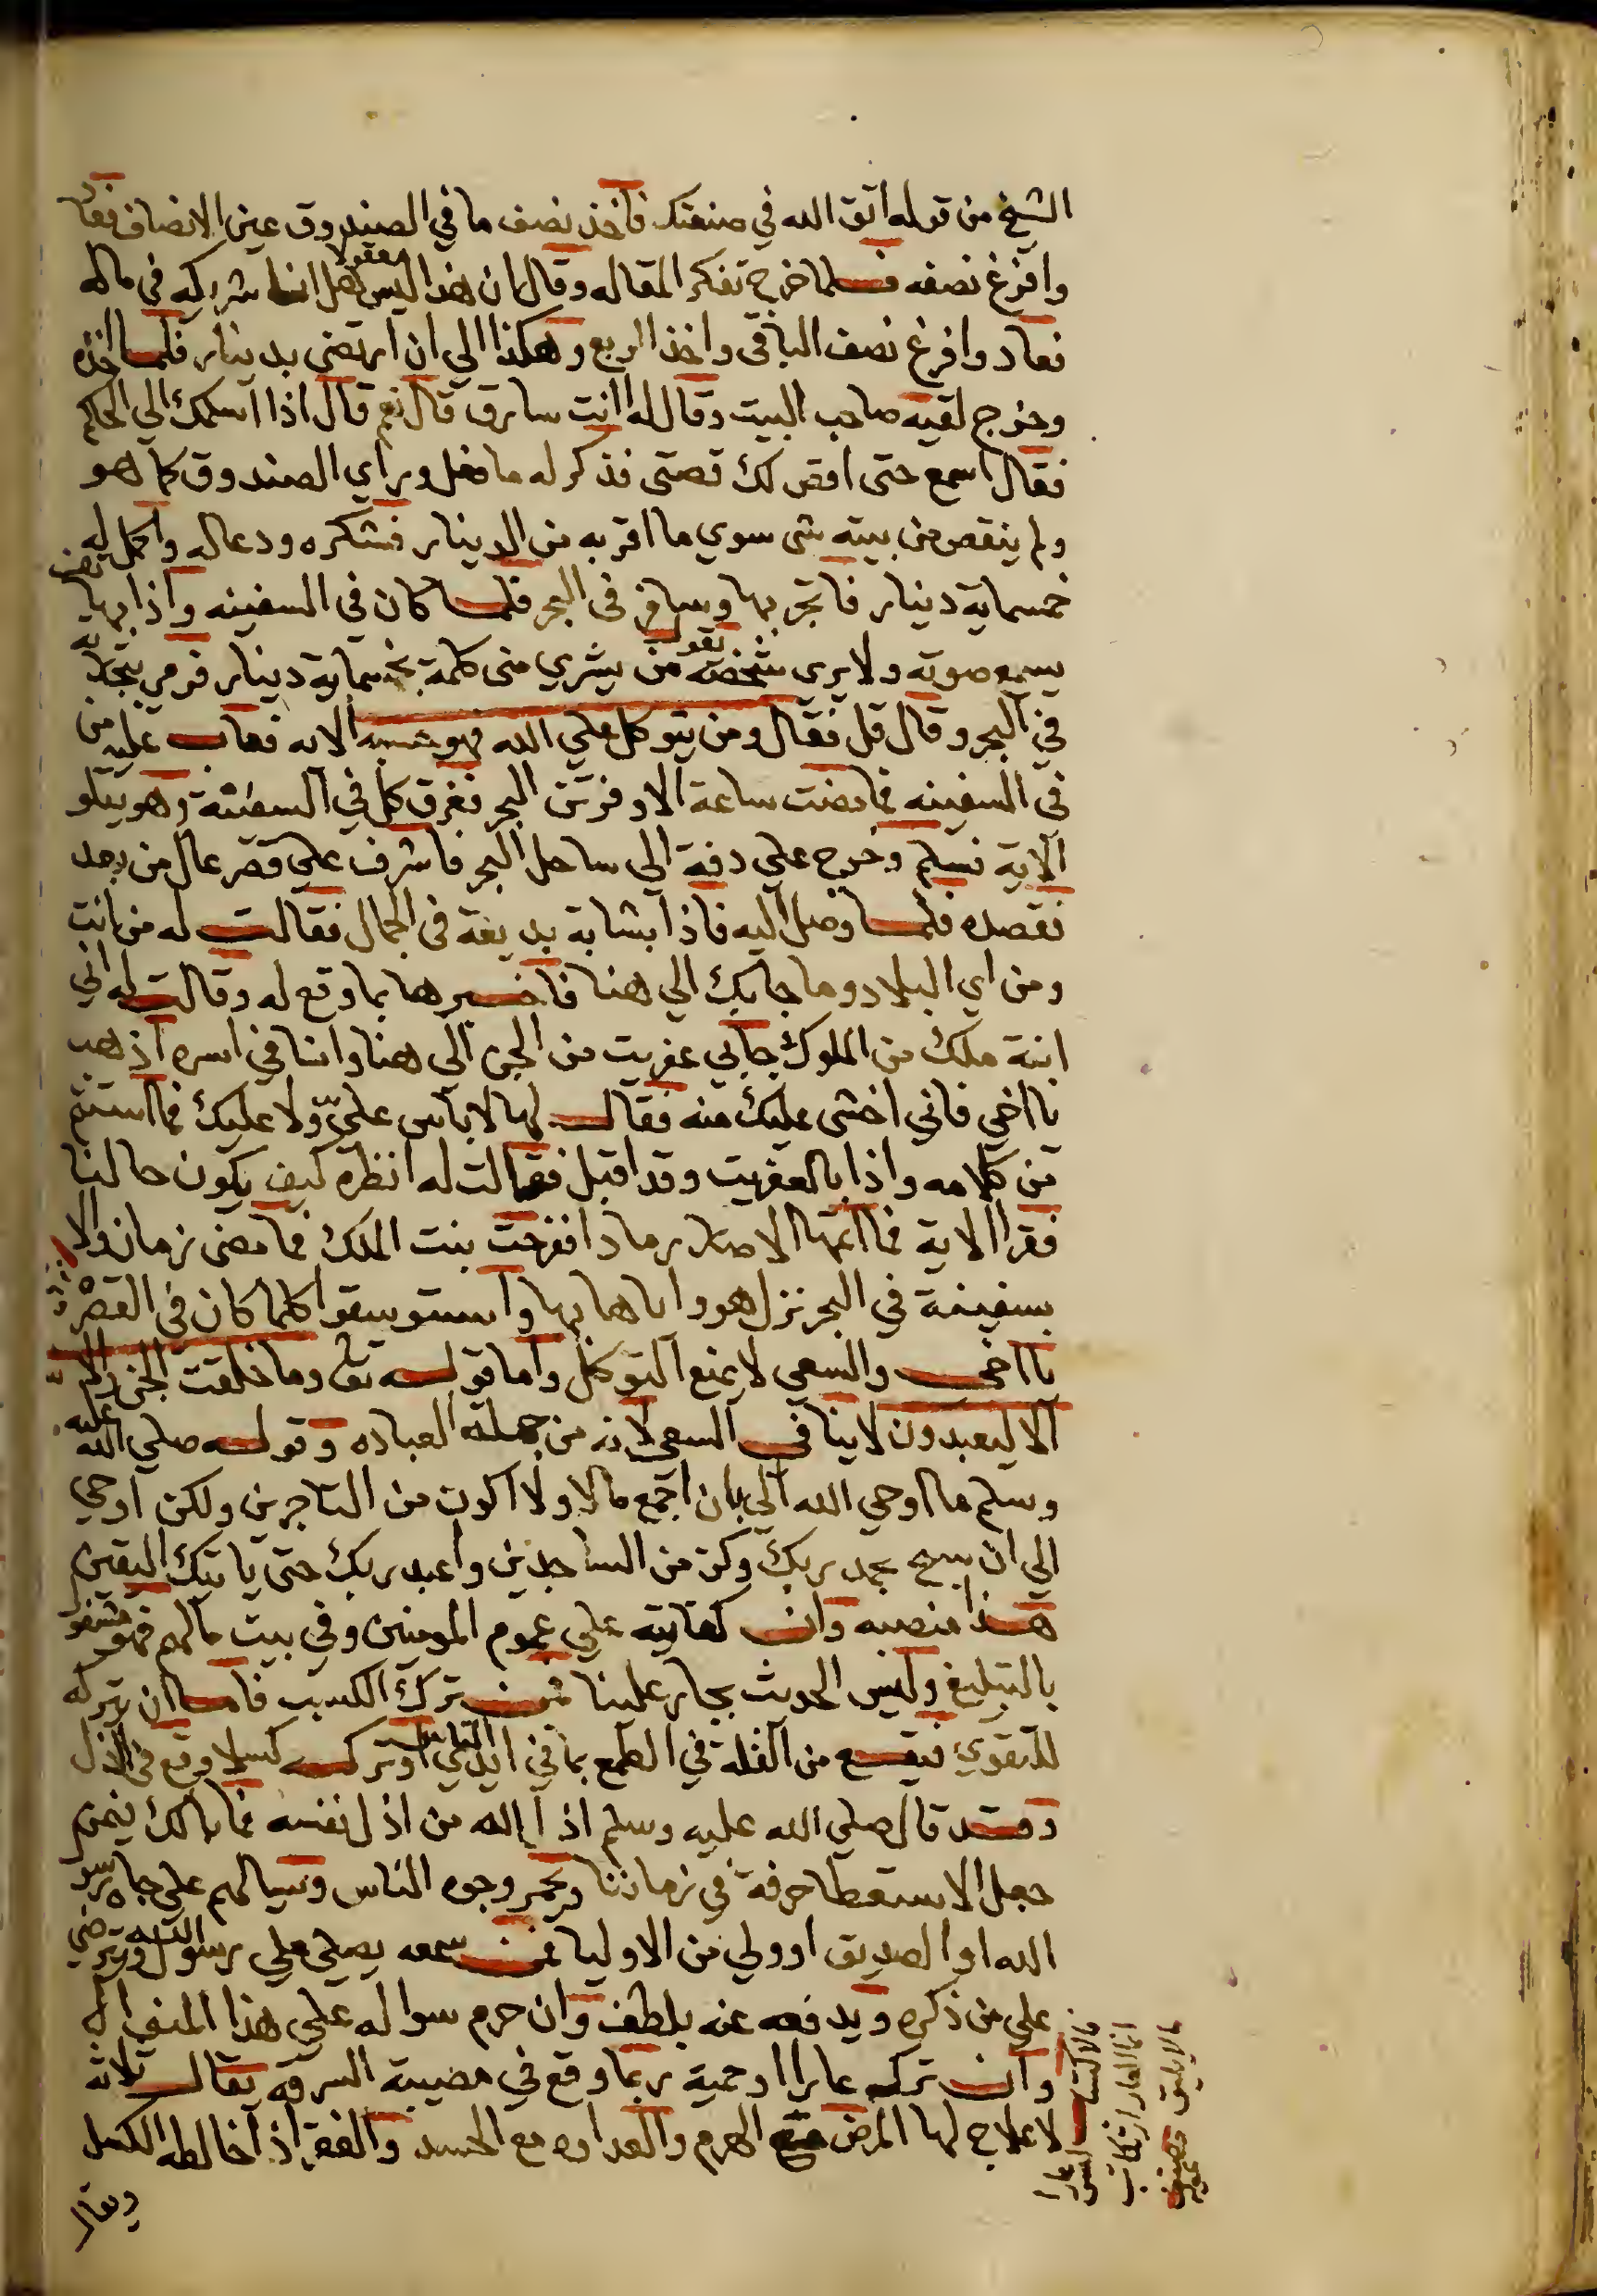 الشيخ من قوله اتق الله في صنعتك فاخذ نصف ما في الصندوق عين الانصاف فعاد
وافرغ نصفه فلما خرج تفكر المقاله وقال ان هذا ليس معقولا هل انا شريكه في ماله
فعاد وافرغ نصف الباقي واخذ الربع وهكذا الي ان ارتضى بدينار فلما اخذه
وخرج لقيه صاحب البيت وقال له انت سارق قال نعم قال اذا اسلمك الي الحاكم
فقال اسمع حتى اقص لك قصتى فذكر له ما فعل وراي الصندوق كما هو
ولم ينقص من بيته شى سوي ما اقر به من الدينار فشكره ودعا له واكمل له
خمسماية دينار فاتجر بها وسافر في البحر فلما كان في السفينه واذا بهاتف
يسمع صوته ولا يري شخصه يقول من يشري منى كلمة بخمساية دينار فرمي بتجارته
في البحر وقال قل فقال ومن يتوكل علي الله فهو حسبه الايه فعاب عليه من
في السفينه فما مضت ساعة الا وفرتن البحر فغرق كل في السفينة وهو يتلو
الاية فسلم وخرج علي دفة الي ساحل البحر فاشرف علي قصر عال من بعد
فقصده فلما وصل اليه فاذا بشابة بديعة في الجمال فقالت له من انت
ومن اي البلاد وما جا بك الي هنا فاخبرها بما وقع له وقالت له اني
ابنة ملك من الملوك جابي عفريت من الجن الي هنا وانا في اسره اذهب
يا اخي فاني اخشى عليك منه فقال لها لا باس عليّ ولا عليك فما استتم
من كلامه واذا بالعفريت وقد اقبل فقالت له انظره كيف يكون حالنا
فقرا الاية فما اتمها الا صار رمادا ففرحت بنت الملك فما مضى زمان والا
بسفينة في البحر نزل هو واياها بها واستوسقوا كلما كان في القصر
يا اخي والسعي لا يمنع التوكل واما قوله تعالى وما خلقت الجن والانس
الا ليعبدون لا ينافي السعي لانه من جملة العباده وقوله صلي الله عليه
وسلم ما اوحي الله الي بان اجمع مالا ولا اكون من التاجرين ولكن اوحي
الي ان سبح بحمد ربك وكن من الساجدين واعبد ربك حتى ياتيك اليقين
هذا منصبه وان كفايته علي عموم المومنين وفي بيت مالهم فهو مشغول
بالتبليغ وليس الحديث بجار علينا فمن ترك الكسب فاما ان يتركه
للتقوي فيقع من الغلة في الطمع بما في ايدي الناس او تركه كسلا وقع في الذل
وقد قال صلي الله عليه وسلم اذل الله من اذل نفسه فما بالك بمن
جعل الاستعطا حرفة في زماننا ويحمر وجوه الناس وسيالهم علي جاه رسول
الله او الصديق او ولي من الاوليا فمن سمعه يصلي علي رسول الله ويترضي
علي من ذكره ويدفعه عنه بلطف وان حرم سواله علي هذا المنوال
وان تركه عارا او حمية ربما وقع في مصيبة السرقه يقال ثلاثه
لا علاج لها المرض مع الهرم والعداوه مع الحسد والفقر اذا خالطه الكسل
ويقال